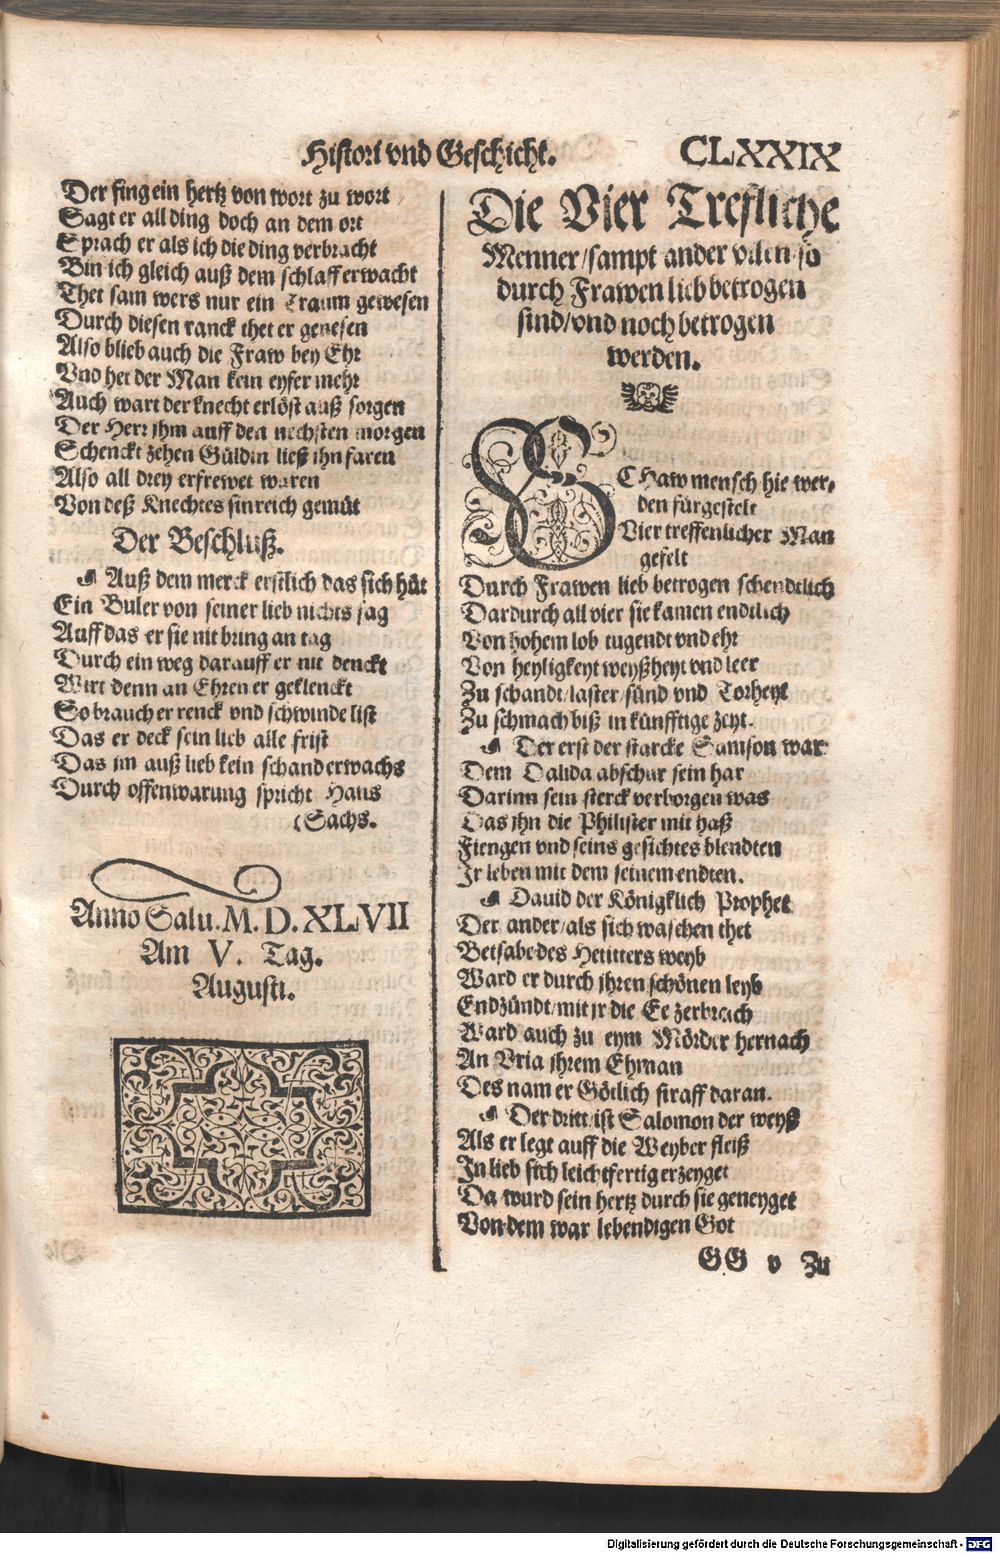 Histori vnd Geschicht. CLXXIX
Der fing ein hertz von wort zu wort
Sagt er all ding doch an dem ort
Sprach er als ich die ding verbracht
Bin ich gleich auß dem schlaff erwacht
Thet sam wers nur ein Traum gewesen
Durch diesen ranck thet er genesen
Also blieb auch die Fraw bey Ehr
Vnd het der Man kein eyfer mehr
Auch wart der knecht erlöst auß sorgen
Der Herr jhm auff den nechsten morgen
Schenckt zehen Güldin ließ jhn faren
Also all drey erfrewet waren
Von deß Knechtes sinreich gemüt
Der Beschluß.
Auß dem merck erstlich das sich hüt
Ein Buler von seiner lieb nichts sag
Auff das er sie nit bring an tag
Durch ein weg darauff er nit denckt
Wirt denn an Ehren er geklenckt
So brauch er renck vnd schwinde list
Das er deck sein lieb alle frist
Das im auß lieb kein schand erwachs
Durch offenwarung spricht Hans
(Sachs.
Anno Salu. M. D. XLVII
Am V. Tag.
Augusti.
Die Vier Trefliche
Menner/sampt ander vilen so
durch Frawen lieb betrogen
sind/vnd noch betrogen
werden.
SChaw mensch hie wer-
den fürgestelt
Vier treffenlicher Man
gefelt
Durch Frawen lieb betrogen schendtlich
Dardurch all vier sie kamen endtlich
Von hohem lob tugendt vnd ehr
Von heyligkeyt weyßheyt vnd leer
Zu schandt/laster/sünd vnd Torheyt
Zu schmach biß in künfftige zeyt.
Der erst der starcke Samson war
Dem Dalida abschur sein har
Darinn sein sterck verborgen was
Das jhn die Philister mit haß
Fiengen vnd seins gesichtes blendten
Jr leben mit dem seinem endten.
Dauid der Königklich Prophet
Der ander/als sich waschen thet
Betsabe des Hetitters weyb
Ward er durch jhren schönen leyb
Endzündt/mit jr die Ee zerbrach
Ward auch zu eym Mörder hernach
An Vria jhrem Ehman
Des nam er Götlich straff daran.
Der dritt/ist Salomon der weyß
Als er legt auff die Weyber fleiß
In lieb sich leichtfertig erzeyget
Da wurd sein hertz durch sie geneyget
Von dem war lebendigen Got
GG v Zu
Digitalisierung gefördert durch die Deutsche Forschungsgemeinschaft - DFG